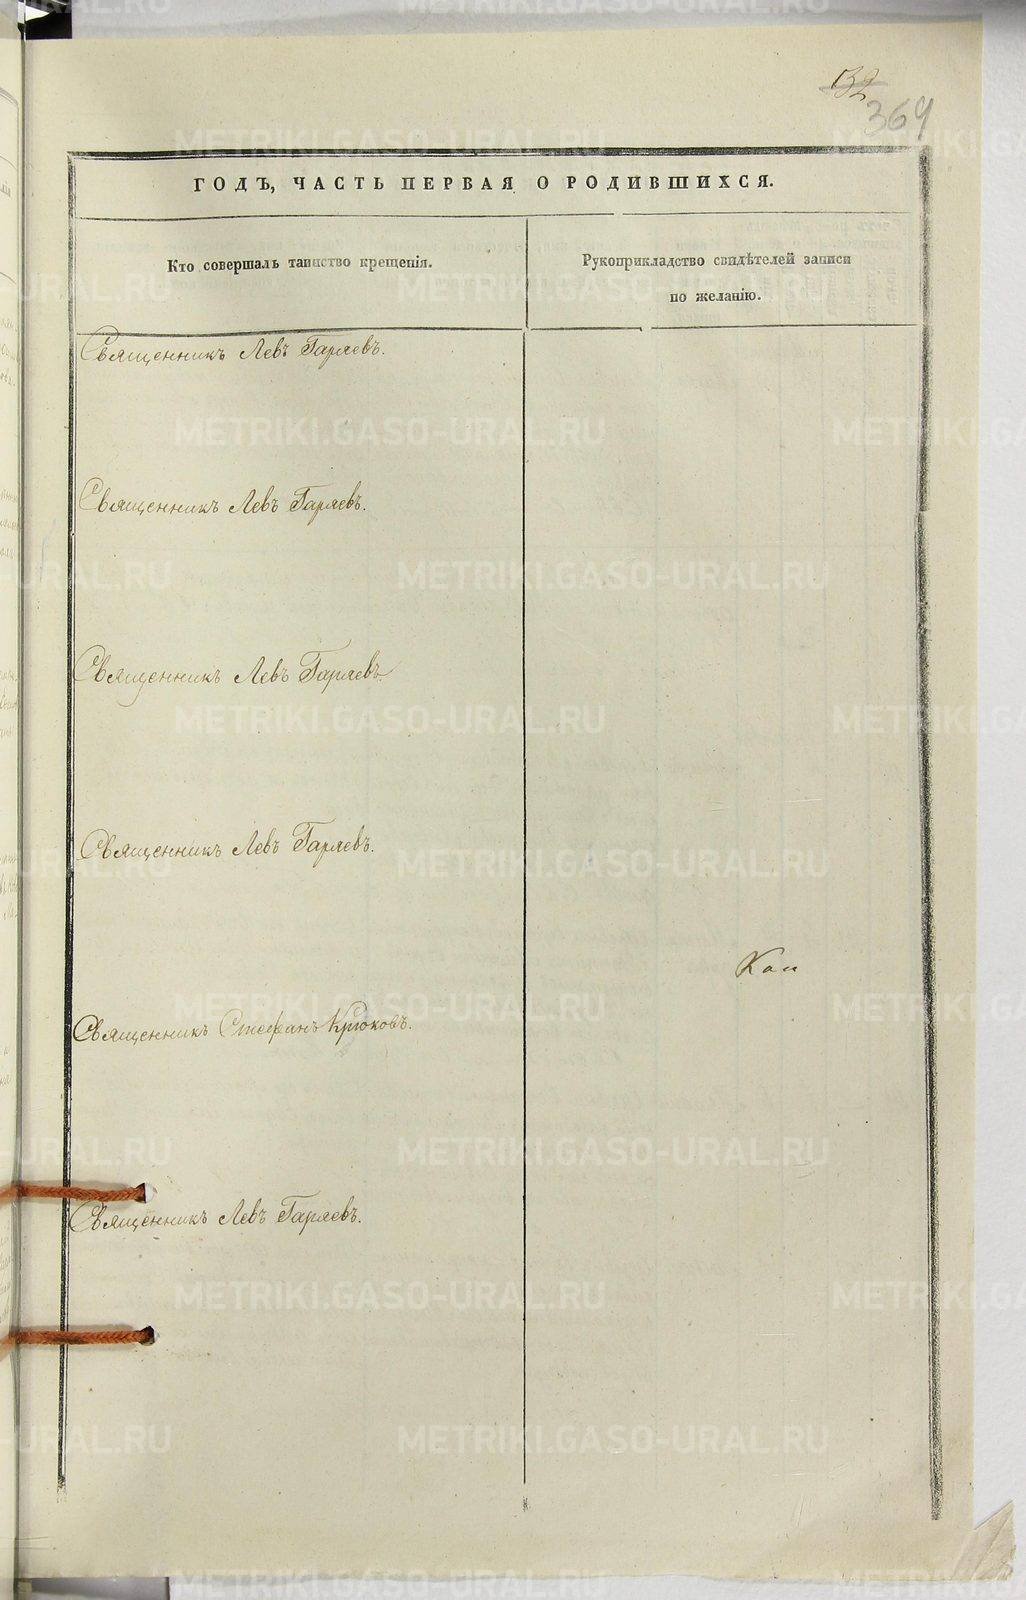 132
369
ГОДЪ, ЧАСТЬ ПЕРВАЯ О РОДИВШИХСЯ.
Кто совершалъ таинство крещенія.
Рукоприкладство свидѣтелей записи
по желанію.
Священникъ Левъ Гаряевъ.
Священникъ Левъ Гаряевъ.
Священникъ Левъ Гаряевъ.
Священникъ Левъ Гаряевъ.
Кон
Священникъ Стефанъ Крюковъ.
Священникъ Левъ Гаряевъ.
METRIKI.GASO-URAL.RU